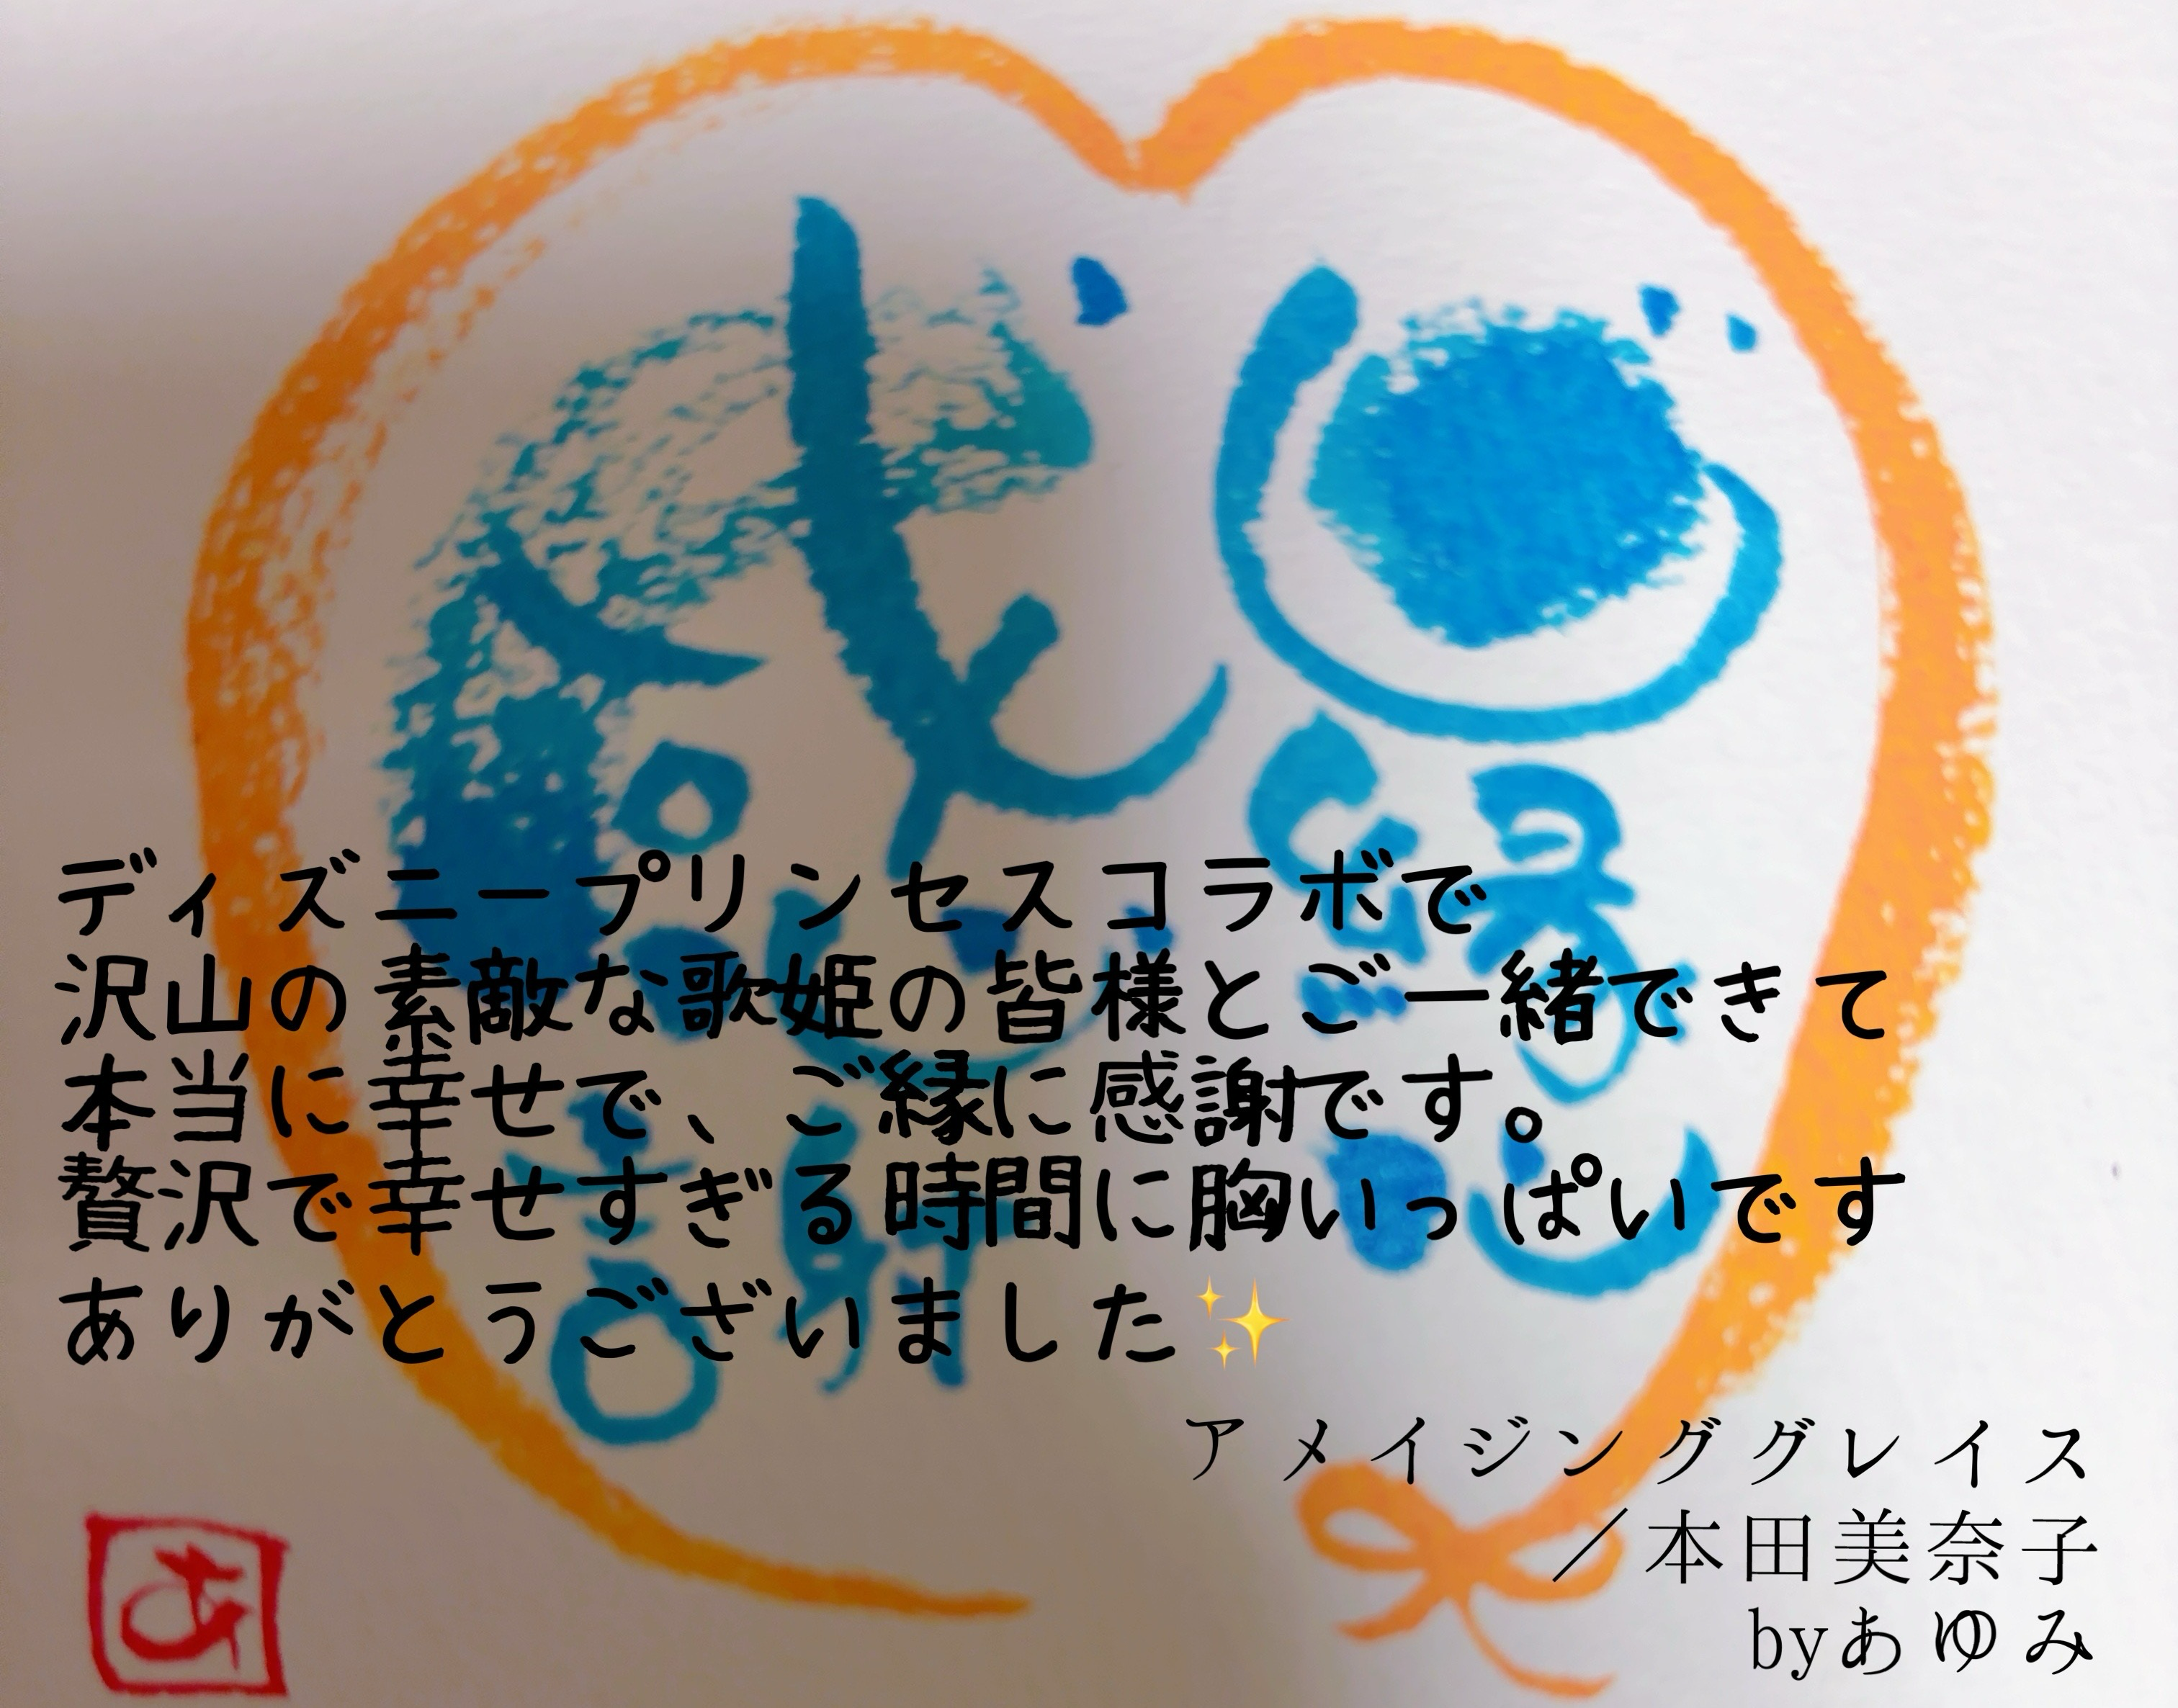 ご縁に
感謝
ディズニープリンセスコラボで
沢山の素敵な歌姫の皆様とご一緒できて
本当に幸せで、ご縁に感謝です。
贅沢で幸せすぎる時間に胸いっぱいです
ありがとうございました✨
アメイジンググレイス
／本田美奈子
byあゆみ
あ